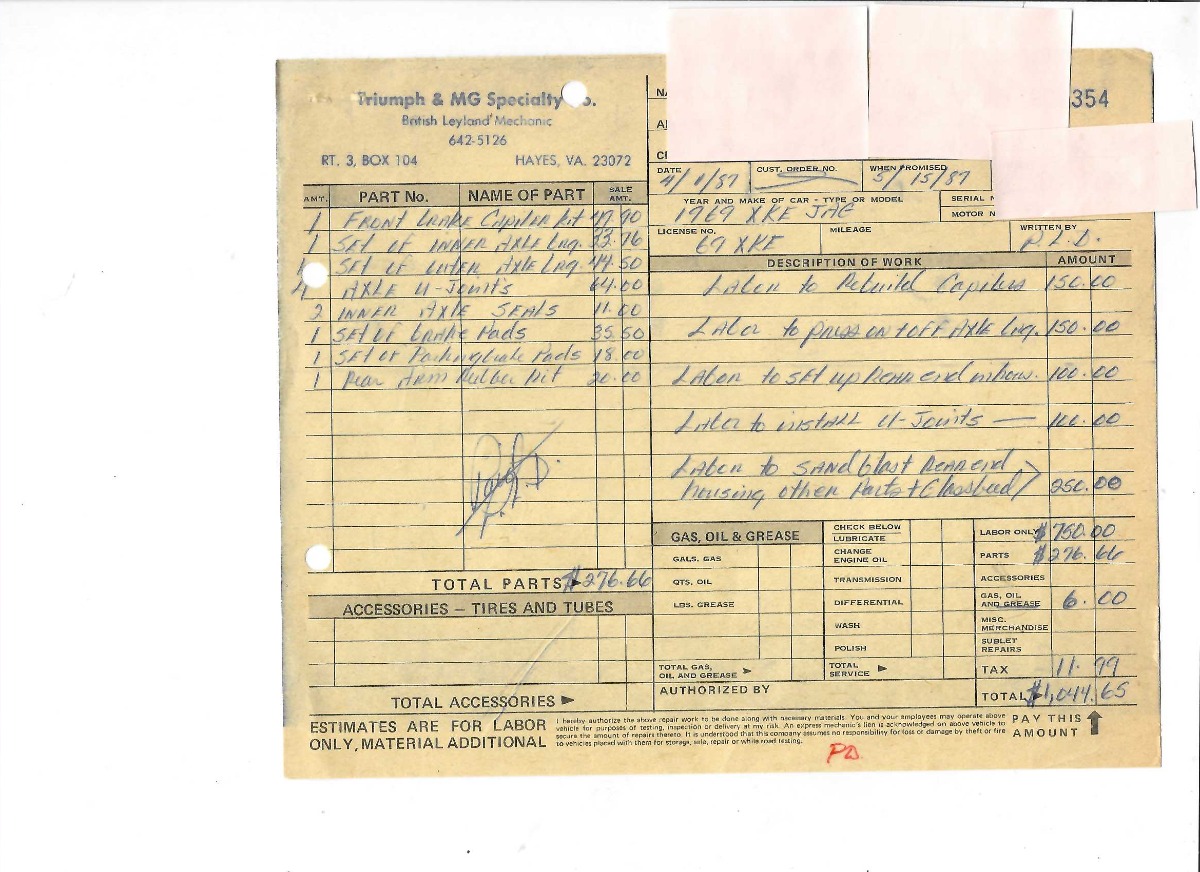 Triumph & MG Specialty Co.
British Leyland Mechanic
642-5126
RT. 3, BOX 104 HAYES, VA. 23072
354
DATE 4/ /87
CUST. ORDER NO.
WHEN PROMISED 5/15/87
YEAR AND MAKE OF CAR - TYPE OR MODEL
1969 XKE JAG
SERIAL N
MOTOR N
LICENSE NO. 69 XKE
MILEAGE
WRITTEN BY R.L.D.
AMT. PART No. NAME OF PART SALE AMT.
1 FRONT BRAKE Capiler kit
1 SET OF INNER AXLE brg. 33.76
SET OF OUTER AXLE brg. 44.50
4 AXLE U-Joints 64.00
2 INNER AXLE SEALS 11.00
1 SET of brake Pads 35.50
1 SET of Parkingbrake Pads 18.00
1 Rear ARM Rubber Kit 20.00
TOTAL PARTS ► $276.66
ACCESSORIES – TIRES AND TUBES
TOTAL ACCESSORIES ►
DESCRIPTION OF WORK AMOUNT
LAbor to Rebuild Capilers 150.00
LAbor to press on + off AXLE brg. 150.00
LAbor to SET up REAR end 100.00
LAbor to iNSTALL U-Joints — 100.00
LAbor to SANDblast REAR end
housing other Parts + Glassbead 250.00
GAS, OIL & GREASE
GALS. GAS
QTS. OIL
LBS. GREASE
TOTAL GAS, OIL AND GREASE ►
CHECK BELOW
LUBRICATE
CHANGE ENGINE OIL
TRANSMISSION
DIFFERENTIAL
WASH
POLISH
TOTAL SERVICE ►
LABOR ONLY $750.00
PARTS $276.66
ACCESSORIES
GAS, OIL AND GREASE 6.00
MISC. MERCHANDISE
SUBLET REPAIRS
TAX 11.99
TOTAL $1,044.65
AUTHORIZED BY
ESTIMATES ARE FOR LABOR
ONLY, MATERIAL ADDITIONAL
I hereby authorize the above repair work to be done along with necessary materials. You and your employees may operate above
vehicle for purposes of testing, inspection or delivery at my risk. An express mechanic's lien is acknowledged on above vehicle to
secure the amount of repairs thereto. It is understood that this company assumes no responsibility for loss or damage by theft or fire
to vehicles placed with them for storage, sale, repair or while road testing.
PAY THIS
AMOUNT
PD.